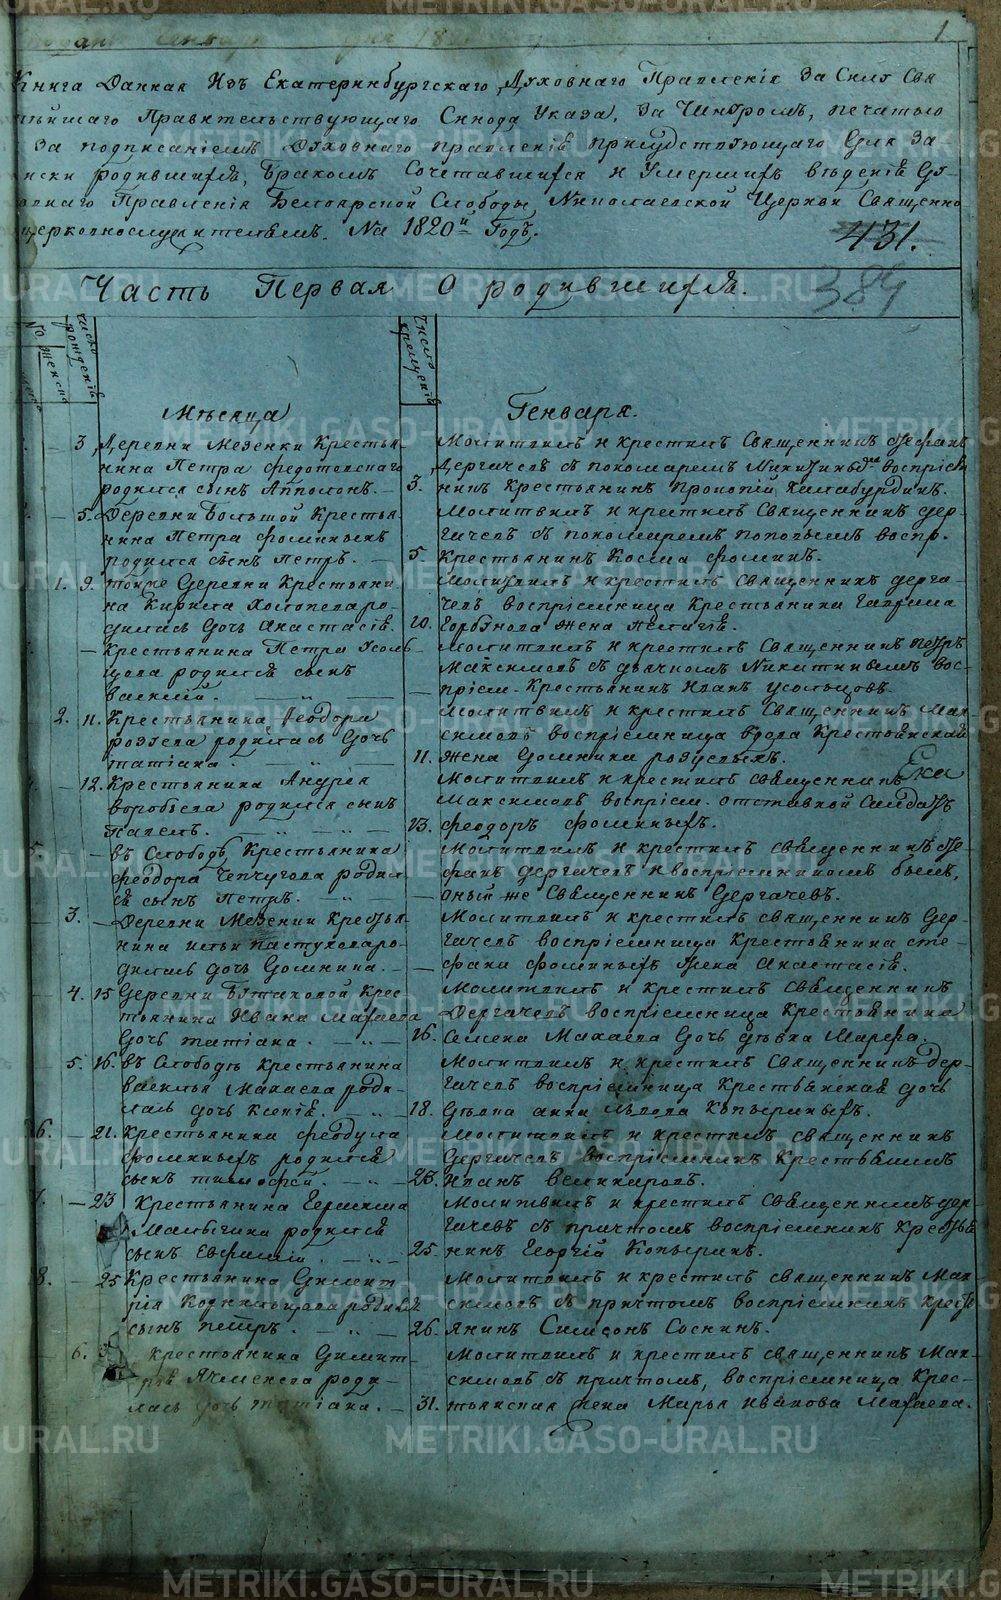 1.
Книга Данная Изъ Екатеринбургскаго Духовнаго Правленія За Силу Свя
тѣйшаго Правительствующаго Синода Указа, За Шнуромъ, печатью
За подписаніемъ Духовнаго правленія присудствующаго Для За
писки родившихся, Бракомъ Сочетавшихся и Умершихъ вѣденія
Правленія Белоярской Слободы Николаевской Церкви Священно
церковнослужителямъ. На 1820й Годъ.
431.
384
Часть Первая О родившихся.
число рожденія
женска
Число крещенія
Мѣсяца Генваря.
3 Деревни Мезенки Крестья-
нина Петра Федотовскаго
родился сынъ Апполонъ.
Молитвилъ и крестилъ Священникъ Стефанъ
Дергачевъ съ пономаремъ воспріем
3. никъ Крестьянинъ Прокопій
5. Деревни Большой Крестья-
нина Петра Фоминыхъ
родился сынъ Петръ.
Молитвилъ и крестилъ Священникъ Дер-
гачевъ съ пономаремъ Поповымъ воспр.
5. Крестьянинъ Косма Фоминъ.
1. 9. тойже Деревни Крестьяни
на Кирила ро-
дилась дочь Анастасія.
Молитвилъ и крестилъ Священникъ Дерга-
чевъ воспріемница Крестьянина Гаврила
10. Горбунова жена Пелагія.
Крестьянина Петра Усоль-
цова родился сынъ
Василий.
Молитвилъ и крестилъ Священникъ Петръ
Максимовъ съ дьячкомъ Никитинымъ вос-
пріем. Крестьянинъ Иванъ Усольцовъ.
2. 11. Крестьянина Феодора
родилась Дочь
татіана.
Молитвилъ и крестилъ Священникъ Мак-
симовъ воспріемница вдова Крестьянская
11. жена Домника
12. Крестьянина Андрія
Воробьева родился сынъ
Павелъ.
Молитвилъ и крестилъ священникъ
Максимовъ воспріем. отставной Салдатъ
13. Феодоръ Фоминыхъ.
5. въ Слободѣ Крестьянина
Феодора Чепчугова родил
ся сынъ Петръ.
Молитвилъ и крестилъ священникъ Сте-
фанъ Дергачевъ и воспріемникомъ былъ,
оный же Священникъ Дергачевъ.
3. Деревни Мезенки Крестья-
нина Ильи Пастухова ро-
дилась дочь Домнина.
Молитвилъ и крестилъ священникъ Дер-
гачевъ воспріемница Крестьянина сте-
фана Фоминыхъ жена Анастасія.
4. 15 Деревни Крес-
тьянина Ивана Махаева
Дочь татіана.
Молитвилъ и крестилъ Священникъ
Дергачевъ воспріемница Крестьянина
16. Семена Махаева Дочь дѣвка Марфа.
5. 16. въ Слободѣ Крестьянина
василья Махаева роди-
лась дочь ксенія.
Молитвилъ и крестилъ Священникъ Дер-
гачевъ воспріемница Крестьянская дочь
18. Дѣвка анна Копыриныхъ.
6. 21. Крестьянина Феодула
Фоминыхъ родился
сынъ тимофей.
Молитвилъ и крестилъ священникъ
Дергачевъ воспріемникъ Крестьянинъ
23. Иванъ
7. 23 Крестьянина Герасима
Малыгина родился
сынъ Евфимій.
Молитвилъ и крестилъ священникъ Дер-
гачевъ съ причтомъ воспріемникъ Крестья
25. нинъ Георгій Копыринъ.
8. 25 Крестьянина Димит-
рія родился
сынъ Петръ.
Молитвилъ и крестилъ священникъ Мак-
симовъ съ причтомъ воспріемникъ кресть
26. янинъ Симеонъ Соснинъ.
6. крестьянина Димит-
рія Ячменева роди-
лась дочь татіана.
Молитвилъ и крестилъ священникъ Мак-
симовъ съ причтомъ, воспріемница Крес-
31. тьянская жена Марья Иванова Махаева.
METRIKI.GASO-URAL.RU